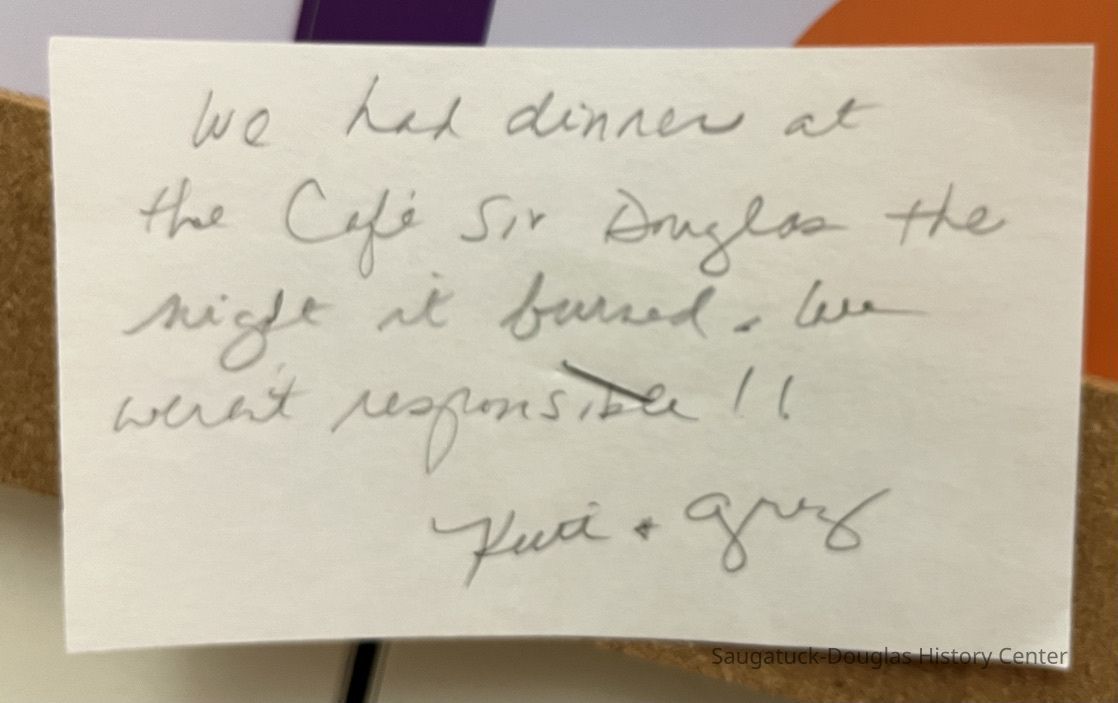 We had dinner at
the Café Sir Douglas the
night it burned. We
weren't responsible!!
+ Greg
Saugatuck-Douglas History Center